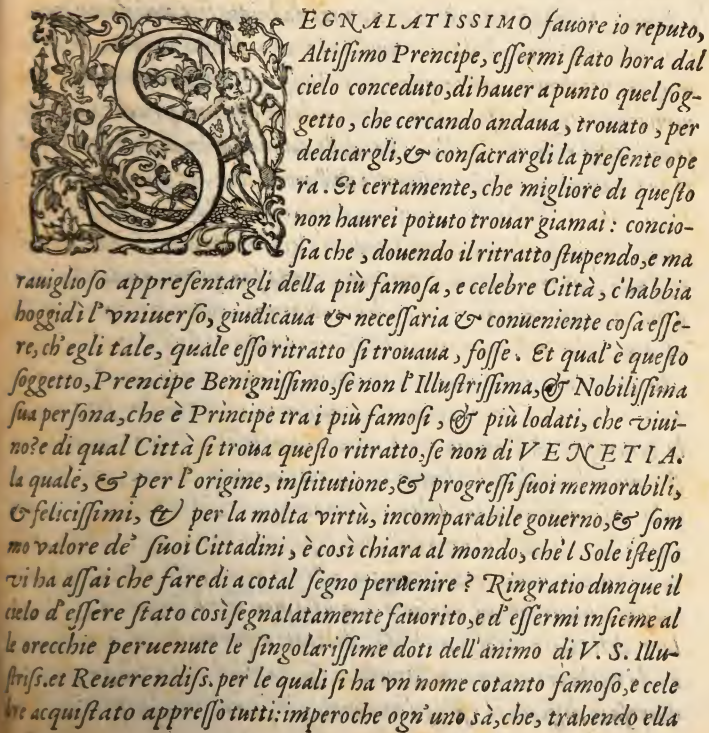 SEGNALATISSIMO fauore io reputo,
Altiſſimo Prencipe, eſſermi ſtato hora dal
cielo conceduto, di hauer apunto quel ſog-
getto, che cercando andaua, trouato, per
dedicargli, & conſacrargli la preſente ope
ra. Et certamente, che migliore di queſto
non haurei potuto trouar giamai: concio-
ſia che, douendo il ritratto ſtupendo, e ma
rauiglioſo appreſentargli della più famoſa, e celebre Città, c'habbia
hoggidì l'vniuerſo, giudicaua & neceſſaria & conueniente coſa eſſe-
re, ch'egli tale, quale eſſo ritratto ſi trouaua, foſſe. Et qual'è queſto
ſoggetto, Prencipe Benigniſſimo, ſe non l'Illuſtriſſima, & Nobiliſſima
ſua perſona, che è Principe tra i più famoſi, & più lodati, che viui-
no? e di qual Città ſi troua queſto ritratto, ſe non di VENETIA.
la quale, & per l'origine, inſtitutione, & progreſſi ſuoi memorabili,
& feliciſſimi, & per la molta virtù, incomparabile gouerno, & ſom
mo valore de' ſuoi Cittadini, è così chiara al mondo, che'l Sole iſteſſo
vi ha aſſai che fare di a cotal ſegno peruenire? Ringratio dunque il
cielo d'eſſere ſtato così ſegnalatamente fauorito, e d'eſſermi inſieme al
le orecchie peruenute le ſingolariſſime doti dell'animo di V. S. Illu-
ſtriſs. et Reuerendiſs. per le quali ſi ha vn nome cotanto famoſo, e cele
bre acquiſtato appreſſo tutti: imperoche ogn'uno sà, che, trahendo ella